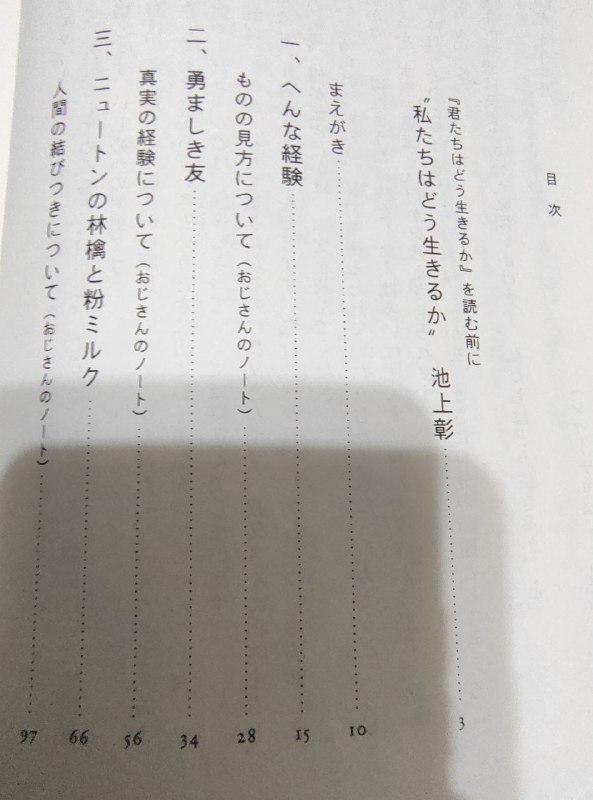 目次
『君たちはどう生きるか』を読む前に
“私たちはどう生きるか” 池上彰……3
まえがき……10
一、へんな経験……15
ものの見方について（おじさんのノート）……28
二、勇ましき友……34
真実の経験について（おじさんのノート）……56
三、ニュートンの林檎と粉ミルク……66
人間の結びつきについて（おじさんのノート）……97